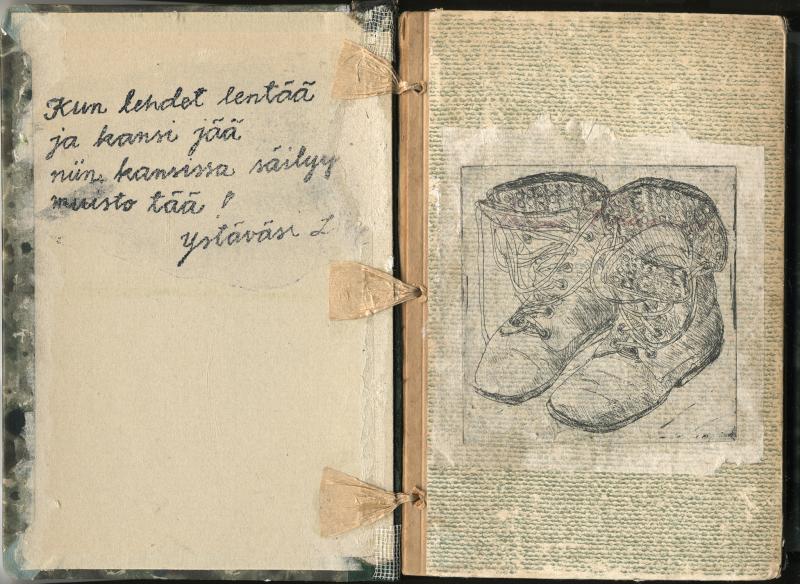 Kun lehdet lentää
ja kansi jää
niin kansissa säilyy
muisto tää !
Ystäväsi L